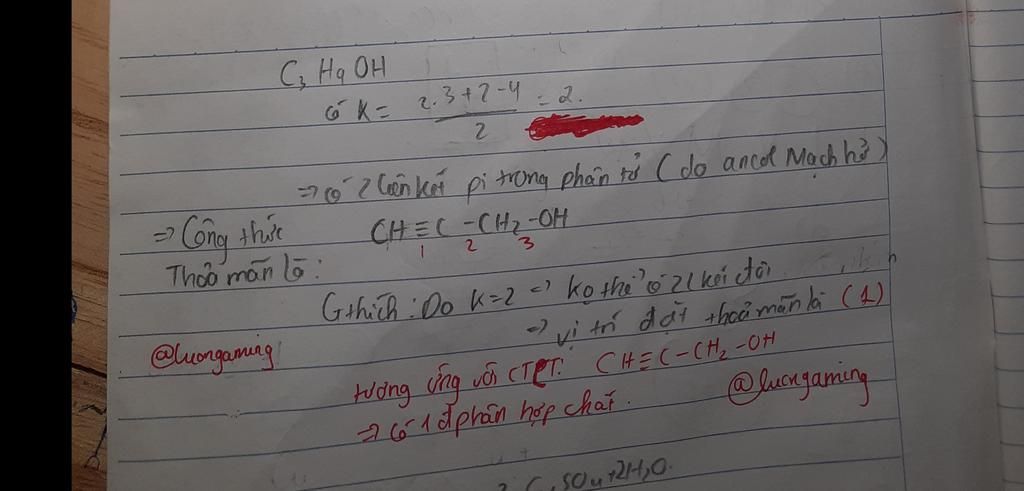 C3H4OH
có K = 2.3+2-4 / 2 = 2.
⇒ có 2 liên kết pi trong phân tử (do ancol Mạch hở)
⇒ Công thức CH≡C-CH2-OH
1 2 3
Thoả mãn là:
Gthích: Do K=2 ⇒ ko thể có 2 l kết đôi
⇒ vị trí đặt thoả mãn là (1)
@luongaming
tương ứng với CTPT: CH≡C-CH2-OH
@luongaming
⇒ có 1 đphân hợp chất.
SO4+2H2O.